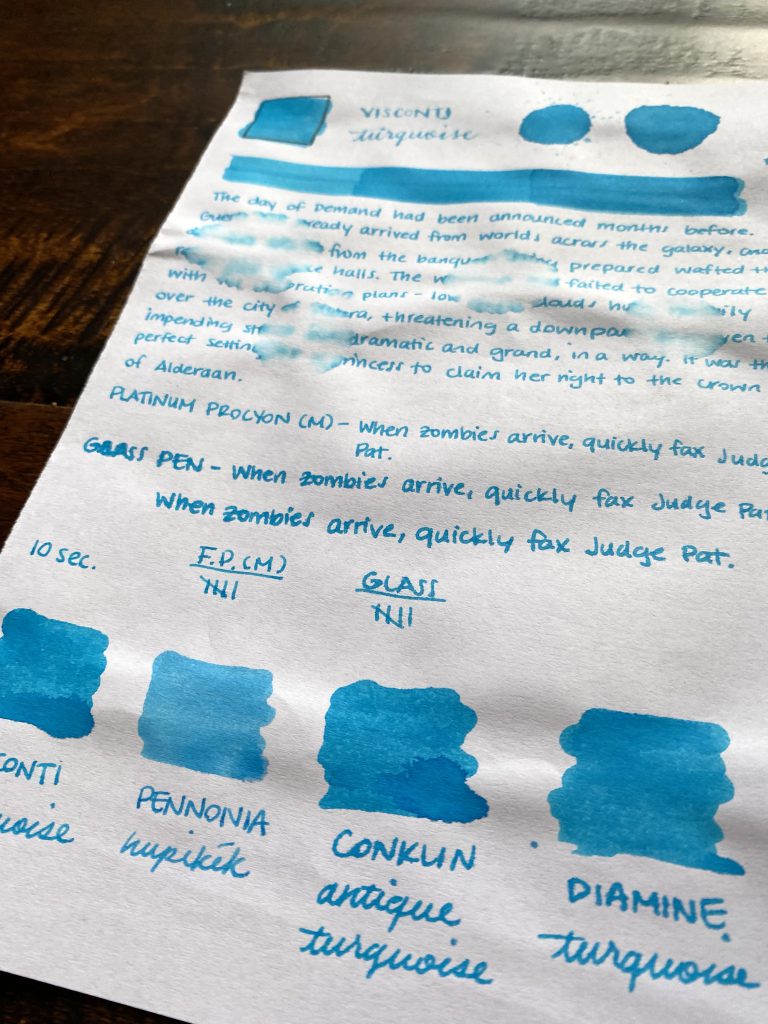 VISCONTI
turquoise
The day of Demand had been announced months before.
ready arrived from worlds across the galaxy, and
from the banquet prepared wafted
halls. The failed to cooperate
with plans - low clouds
over the city threatening a downpour
impending dramatic and grand, in a way. It was the
perfect setting princess to claim her right to the crown
of Alderaan.
PLATINUM PROCYON (M) - When zombies arrive, quickly fax Judge
Pat.
GLASS PEN - When zombies arrive, quickly fax Judge Pat
When zombies arrive, quickly fax Judge Pat.
10 sec.
F.P. (M)
GLASS
CONTI
uoise
PENNONIA
hupikék
CONKLIN
antique
turquoise
DIAMINE
turquoise